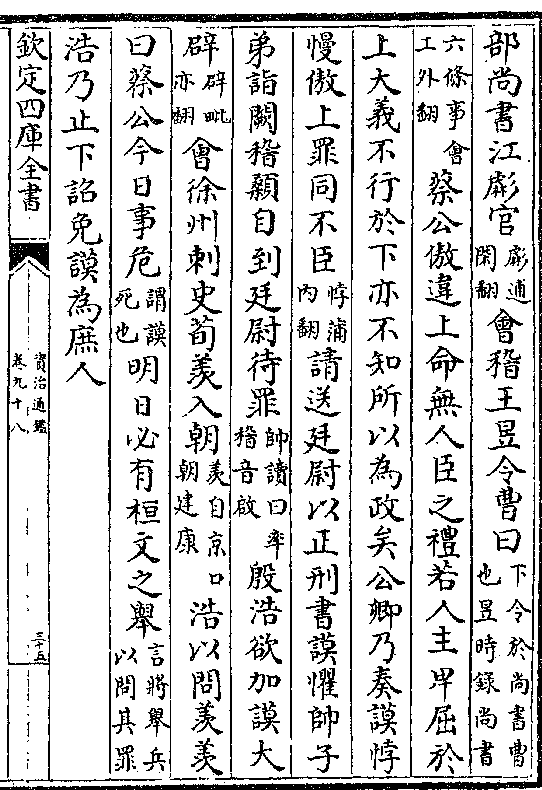 部尚書江虨官虨逋閑翻會稽王昱令曹曰下令於尚書曹也昱時録尚書
六條事會工外翻蔡公傲違上命無人臣之禮若人主卑屈於
上大義不行於下亦不知所以為政矣公卿乃奏謨悖
慢傲上罪同不臣悖蒲内翻請送廷尉以正刑書謨懼帥子
弟詣闕稽顙自到廷尉待罪帥讀曰率稽音啟殷浩欲加謨大
辟辟毗亦翻會徐州刺史荀羡入朝羡自京口朝建康浩以問羡羡
曰蔡公今日事危謂謨死也明日必有桓文之舉言將舉兵以問其罪
浩乃止下詔免謨為庶人
欽定四庫全書
資治通鑑
卷九十八
三十五